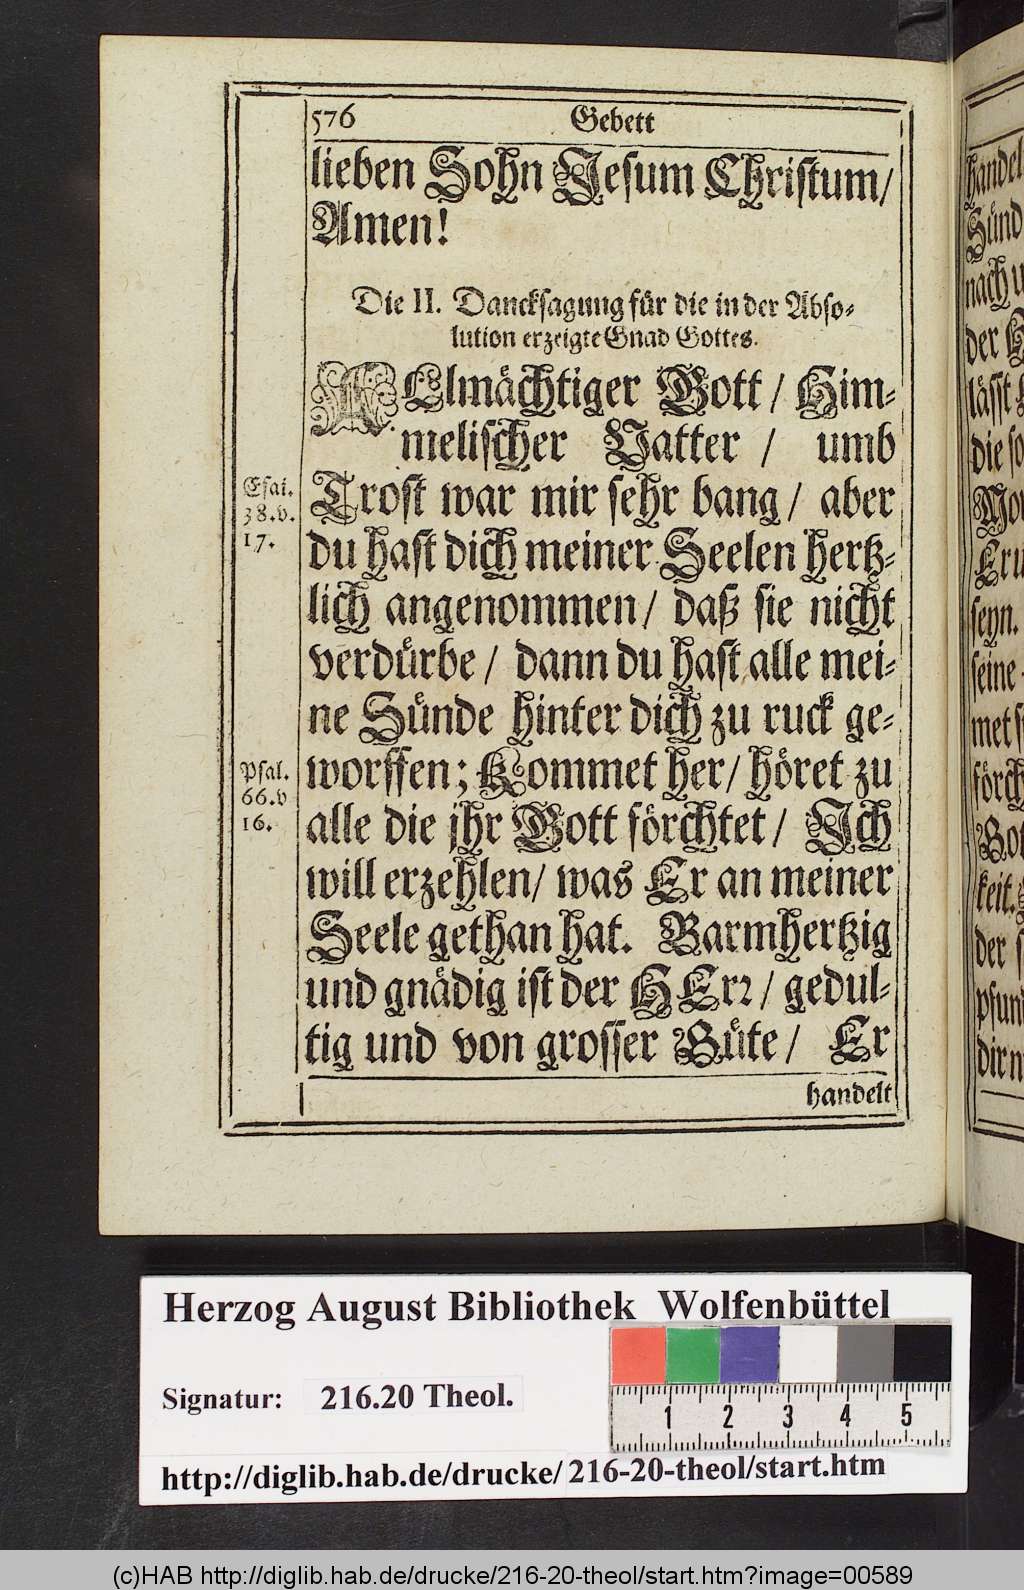 576 Gebett
lieben Sohn Jesum Christum/
Amen!
Die II. Dancksagung für die in der Abso-
lution erzeigte Gnad Gottes.
ALlmächtiger Gott / Him-
melischer Vatter / umb
Trost war mir sehr bang / aber
du hast dich meiner Seelen hertz-
lich angenommen / daß sie nicht
verdürbe / dann du hast alle mei-
ne Sünde hinter dich zu ruck ge-
worffen; Kommet her / höret zu
alle die jhr Gott förchtet / Ich
will erzehlen / was Er an meiner
Seele gethan hat. Barmhertzig
und gnädig ist der HErr / gedul-
tig und von grosser Güte / Er
handelt
Esai.
38.v.
17.
Psal.
66.v
16.
handel
Sünd
nach u
der H
lässt
die so
Mor
Er u
seyn.
seine
met s
förch
Got
keit.
der s
pfun
dir n
Herzog August Bibliothek Wolfenbüttel
Signatur: 216.20 Theol.
1 2 3 4 5
http://diglib.hab.de/drucke/216-20-theol/start.htm
(c)HAB http://diglib.hab.de/drucke/216-20-theol/start.htm?image=00589